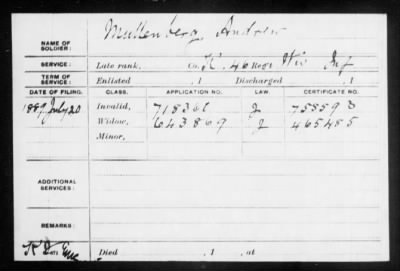 NAME OF SOLDIER: Mullenberg, Andrew
SERVICE: Late rank, Co. K, 46 Reg't Wis Inf
TERM OF SERVICE: Enlisted , 1 Discharged , 1
DATE OF FILING. CLASS. APPLICATION NO. LAW. CERTIFICATE NO.
1889 July 20 Invalid, 718361 J 758593
Widow, 643869 J 465485
Minor,
ADDITIONAL SERVICES:
REMARKS:
Died , 1 , at